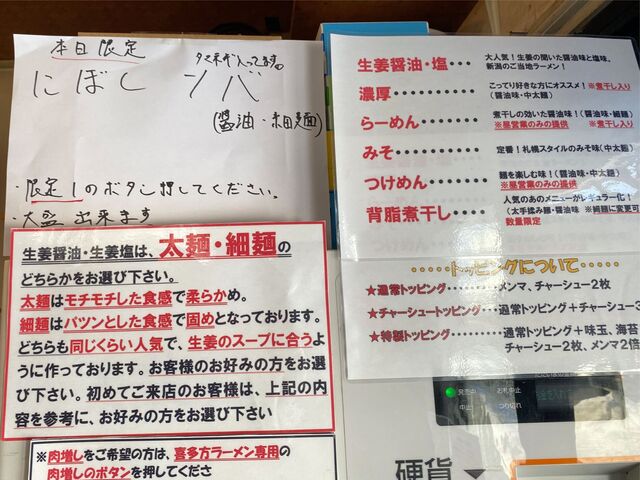 本日限定
タマネギ入ってます。
にぼしソバ
(醤油・細麺)
・限定1のボタン押してください。
・大盛出来ます
生姜醤油・生姜塩は、太麺・細麺の
どちらかをお選び下さい。
太麺はモチモチした食感で柔らかめ。
細麺はパツンとした食感で固めとなっております。
どちらも同じくらい人気で、生姜のスープに合うよ
うに作っております。お客様のお好みの方をお選
び下さい。初めてご来店のお客様は、上記の内
容を参考に、お好みの方をお選び下さい
※肉増しをご希望の方は、喜多方ラーメン専用の
肉増しのボタンを押してくださ
生姜醤油・塩・・・ 大人気！生姜の聞いた醤油味と塩味。
新潟のご当地ラーメン！
濃厚・・・・・・・ こってり好きな方にオススメ！ ※煮干し入り
（醤油味・中太麺）
らーめん・・・・・ 煮干しの効いた醤油味！（醤油味・細麺）
※昼営業のみの提供 ※煮干し入り
みそ・・・・・・・ 定番！札幌スタイルのみそ味（中太麺）
つけめん・・・・・ 麺を楽しむ味！（醤油味・中太麺）
※昼営業のみの提供
背脂煮干し・・・・ 人気のあのメニューがレギュラー化！
（太手揉み麺・醤油味 ※細麺に変更可
数量限定
・・・・・トッピングについて・・・・・
★通常トッピング・・・・・・・メンマ、チャーシュー2枚
★チャーシュートッピング・・・通常トッピング＋チャーシュー3
★特製トッピング・・・・・・・・・通常トッピング＋味玉、海苔
チャーシュー2枚、メンマ2倍
発売中 お札中止
中止 つり切れ
硬貨